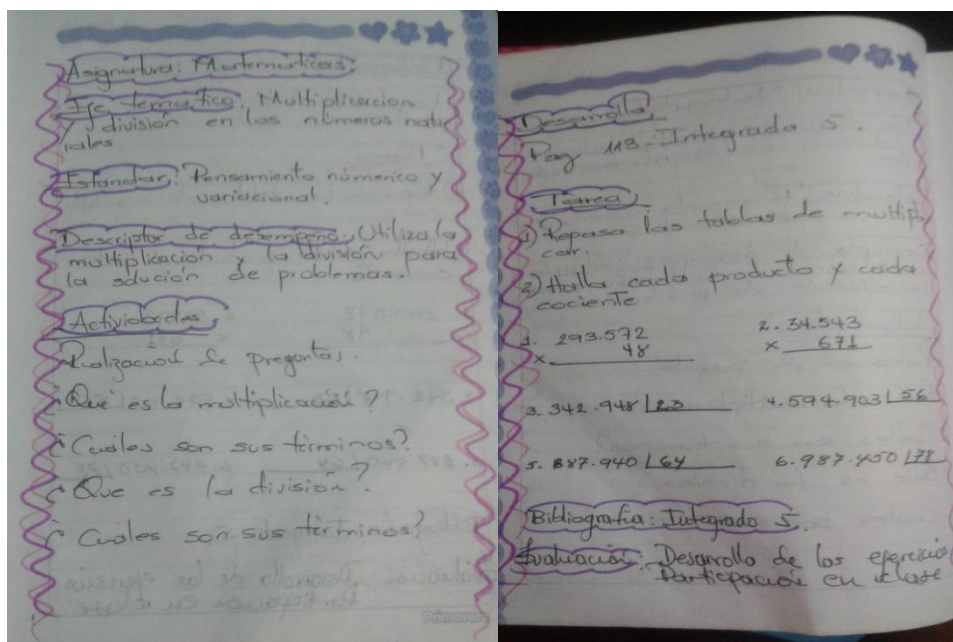 Asignatura: Matemáticas
Eje temático. Multiplicacion
y división en los números natu
rales
Estandar: Pensamiento númerico y
variacional.
Descriptor de desempeño. Utiliza la
multiplicación y la división para
la solución de problemas.
Actividades.
Realización de preguntas.
¿Qué es la multiplicación?
¿Cuáles son sus términos?
¿Que es la división?
¿Cuales son sus términos?
Primavera
Desarrollo
Pag 113 - Integrado 5.
Tarea
1) Repasa las tablas de multipli
car.
2) Halla cada producto y cada
cociente
1. 293.572
x 48
2. 34.543
x 671
3. 342.948 23
4. 594.903 56
5. 887.940 64
6. 987.450 78
Bibliografia: Integrado 5.
Evaluación: Desarrollo de los ejercicios
Participación en clase